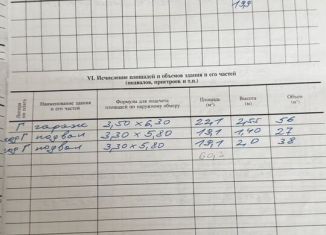 19,9
VI. Исчисление площадей и объемов здания и его частей
(подвалов, пристроек и т.п.)
Литера по плану Наименование здания и его частей Формулы для подсчета площадей по наружному обмеру Площадь (м²) Высота (м) Объем (м³)
Г гараж 3,50 x 6,30 22,1 2,55 56
под Г подвал 3,30 x 5,80 19,1 1,40 27
под Г подвал 3,30 x 5,80 19,1 2,0 38